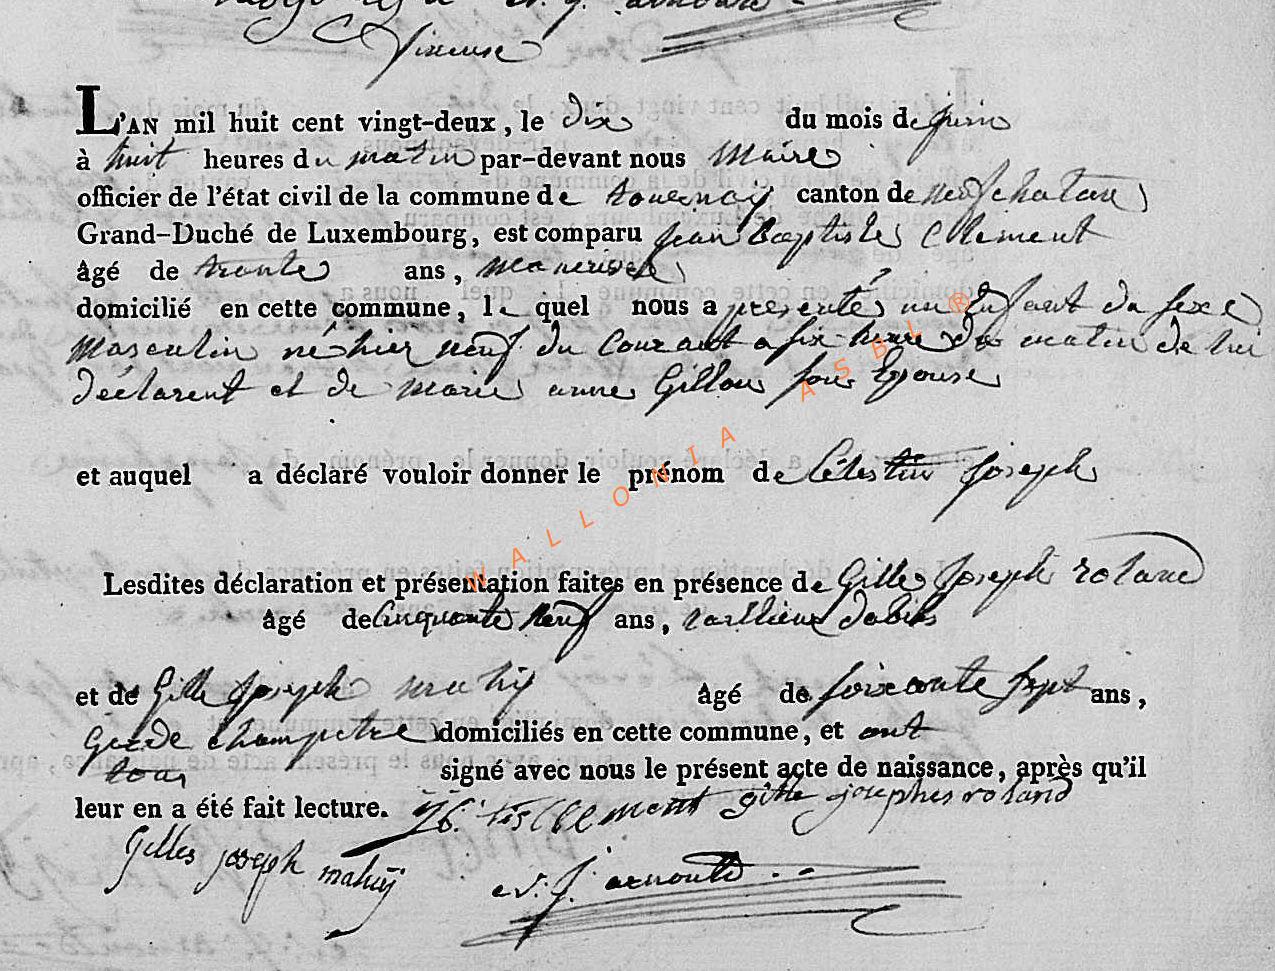 Vireuse
L'AN mil huit cent vingt-deux, le dix du mois de juin
à huit heures du matin par-devant nous Maire
officier de l'état civil de la commune de tournay canton de neufchateau
Grand-Duché de Luxembourg, est comparu jean Baptiste Clement
âgé de trente ans,
domicilié en cette commune, le quel nous a presenté un Enfant du sexe
Masculin né hier neuf du Courant a six heure du matin de lui
déclarent et de marie anne Gillou son Epouse
et auquel a déclaré vouloir donner le prénom de Célestin Joseph
Lesdites déclaration et présentation faites en présence de Gille Joseph roland
âgé de Cinquante neuf ans, taillieur dabits
et de Gille Joseph mahy âgé de soixante sept ans,
Garde champetre domiciliés en cette commune, et ont
tous signé avec nous le présent acte de naissance, après qu'il
leur en a été fait lecture. gille josephes roland
Gilles joseph mahy
arnould
WALLONIA ASBL ®